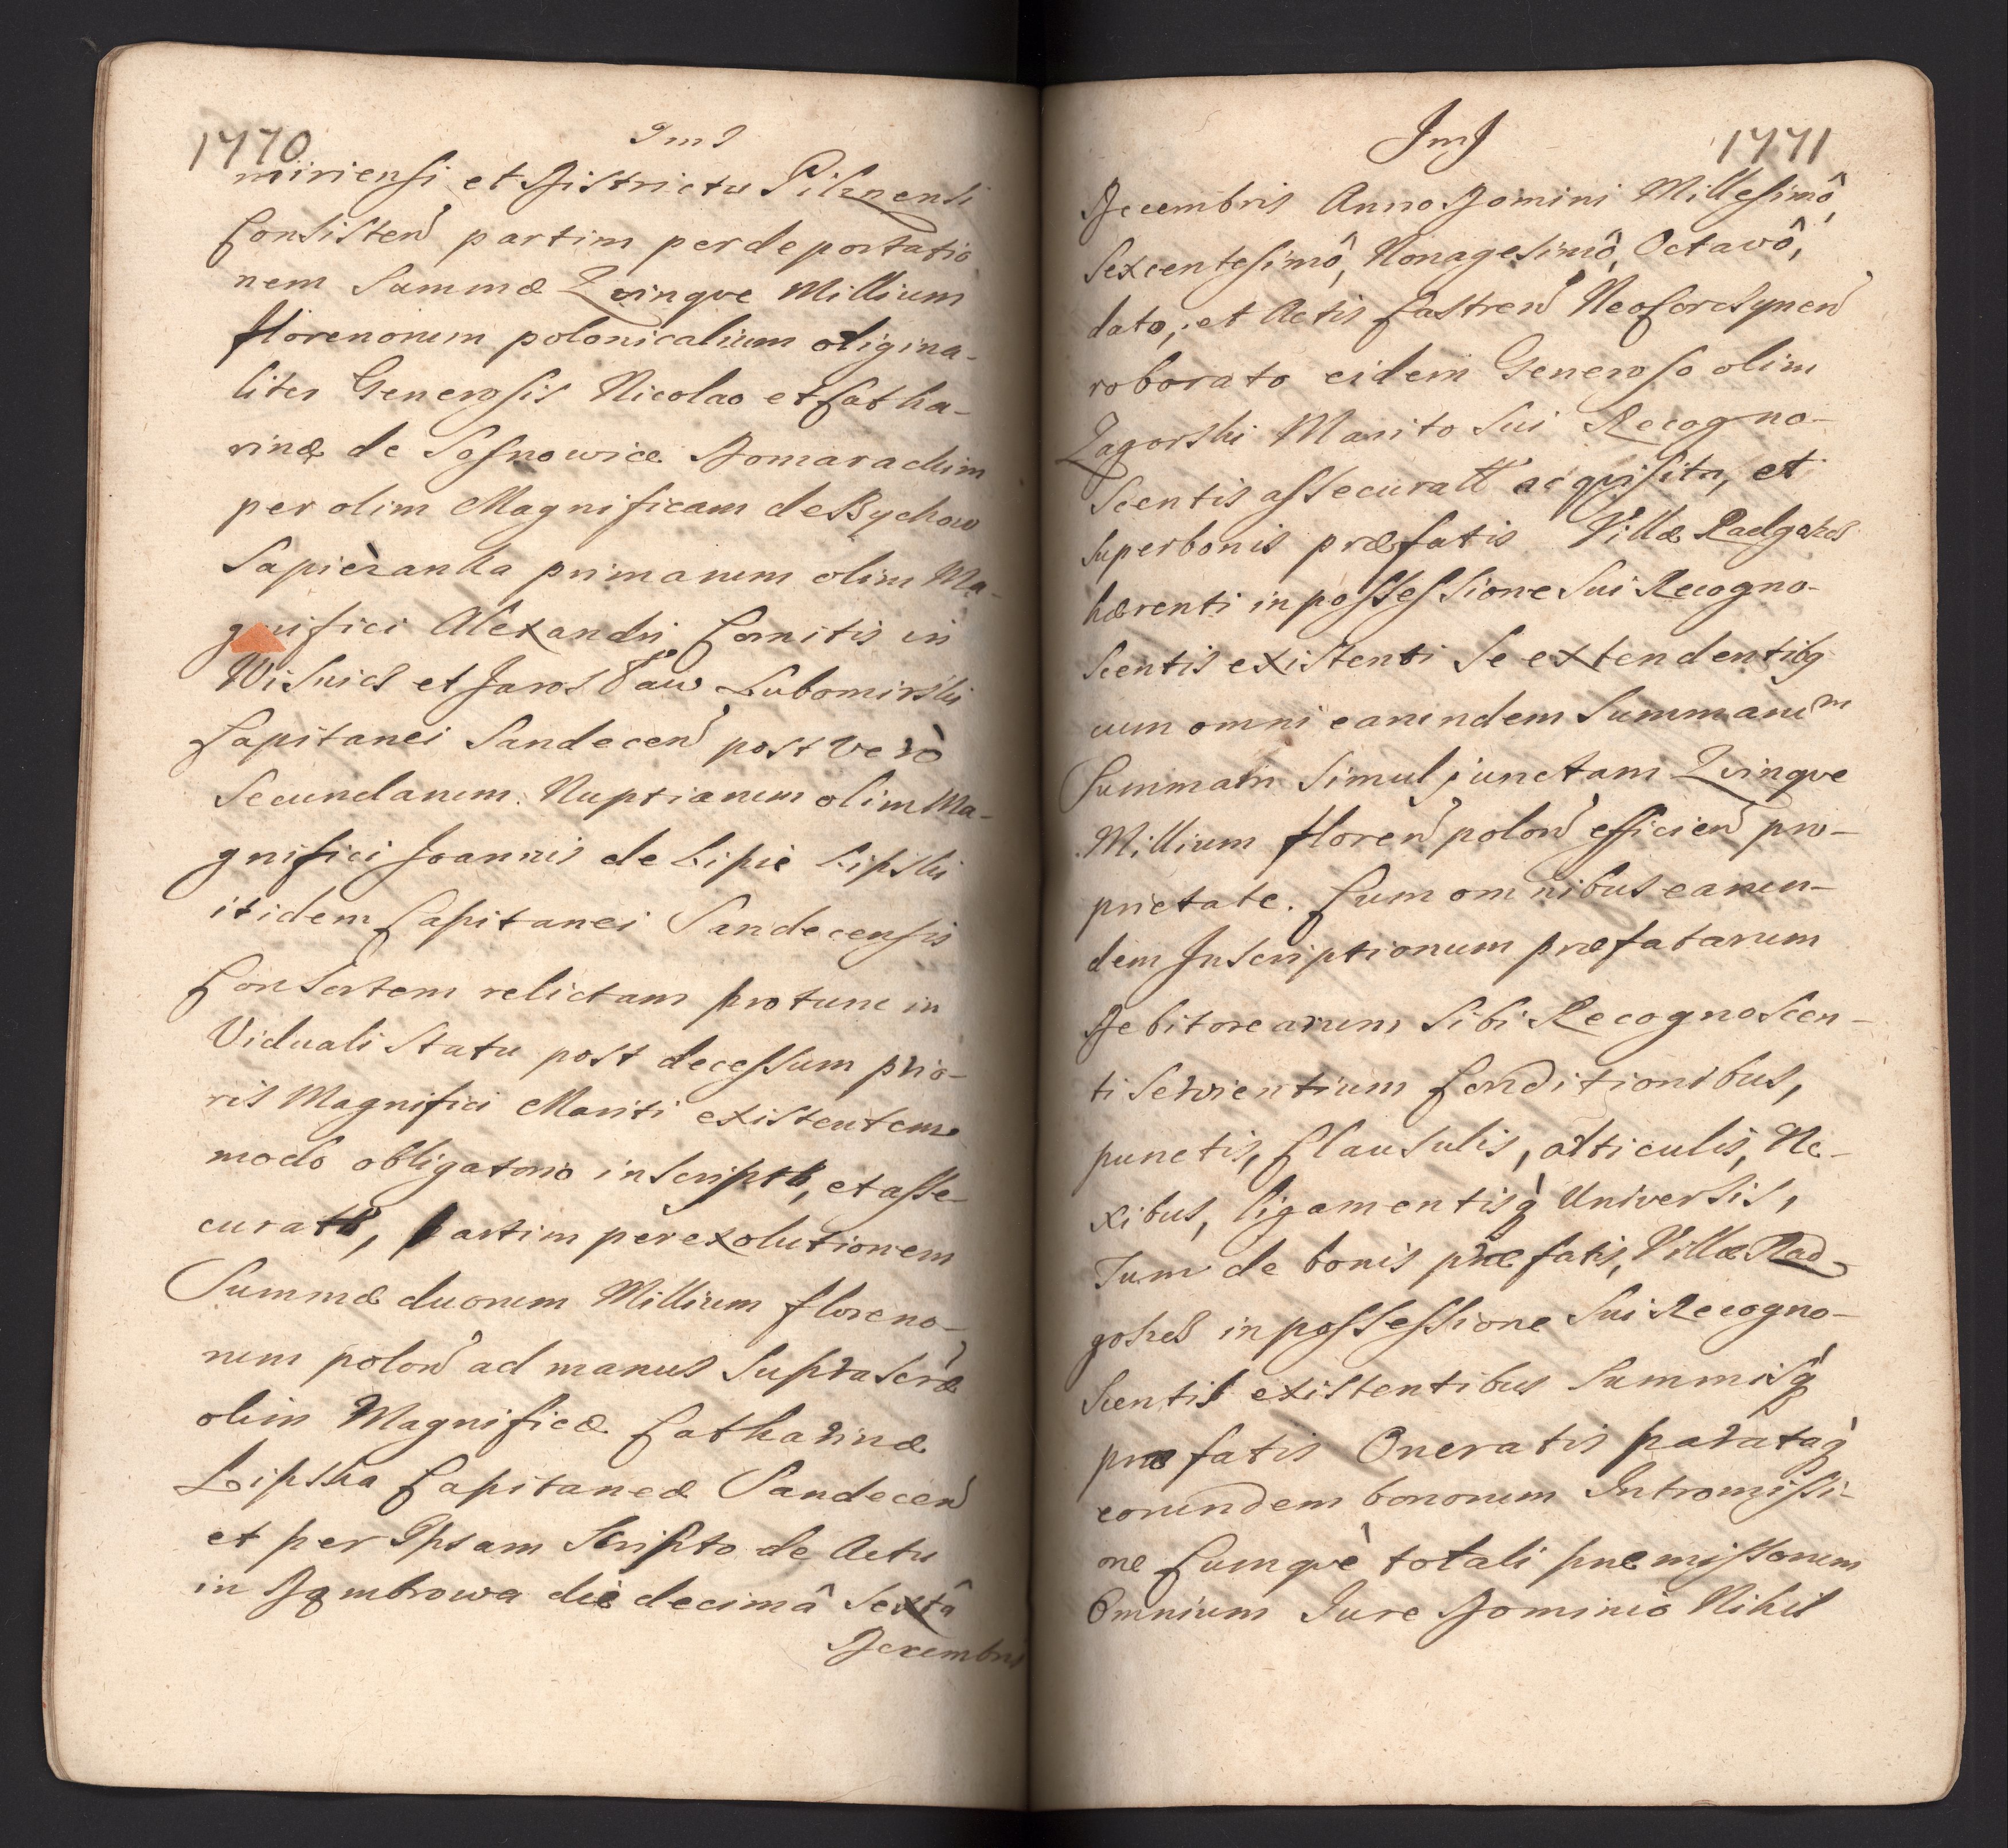 1770
JmJ
miriensi et Districtu Pilznensi
Consisten partim per deportatio
nem Summæ Qvinqve Millium
florenorum polonicalium origina-
liter Generosis Nicolao et Catha-
rinæ de Sosnowice Domarackim
per olim Magnificam de Bychow
Sapiezanka primarum olim Ma-
gnifici Alexandri Comitis in
Wisnicz et Jarosław Lubomirski
Capitanei Sandecen post verò
Secundarum Nuptiarum olim Ma-
gnifici Joannis de Lipie Lipski
itidem Capitanei Sandecensis
Consortem relictam pro tunc in
Viduali statu post decessum prio-
ris Magnifici Mariti existentem
modo obligatorio inscriptæ, et asse-
curatæ, partim per exolutionem
Summæ duorum Millium floreno-
rum polon ad manus Suprascræ
olim Magnificæ Catharinæ
Lipska Capitaneæ Sandecen
et per Ipsam Scripto de Actu
in Dąmbrowa die decimâ Sextâ
Decembris
JmJ
1771
Decembris Anno Domini Millesimô,
Sexcentesimô, Nonagesimô, Octavô,
dato, et Actis Castren Neoforcsynen
roborato eidem Generoso olim
Zagorski Marito Sui Recogno-
scentis assecuratt acqvisita, et
super bonis præfatis Villæ Radgoszcz
hærenti in possessione Sui Recogno-
scentis existenti se extendentibq
cum omni earundem Summarum
Summam Simul junctam Qvinqve
Millium floren polon efficien pro-
prietate. Cum omnibus earun-
dem Inscriptionum præfatarum
Debitorearum Sibi Recognoscen-
ti Servientium Conditionibus,
punctis, Clausulis, articulis, Ne-
xibus, ligamentisq Universis,
Tum de bonis præfatis, Villæ Rad
goszcz in possessione Sui Recogno-
scentis existentibus Summisq
præfatis Oneratis parataq
eorundem bonorum Intromissi-
one Cumqvè totali præmissorum
Omnium Jure Dominio Nihil